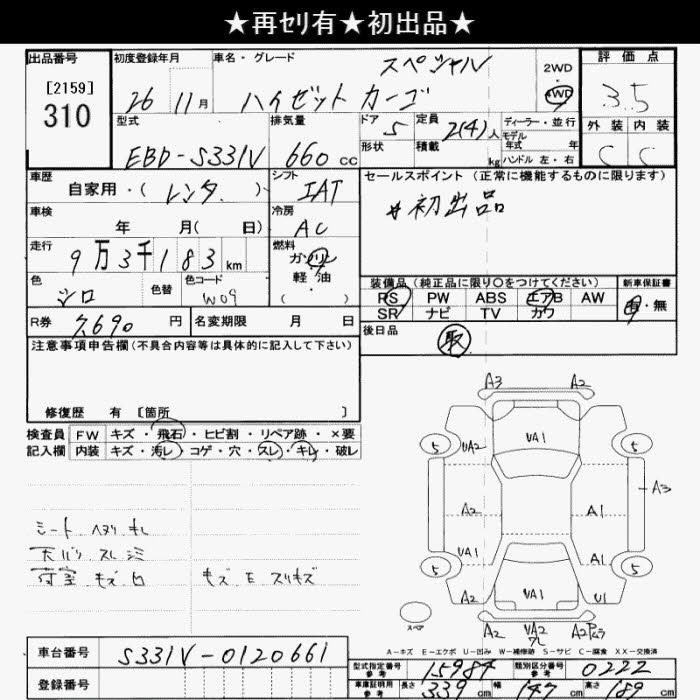 ★再セリ有★初出品★
出品番号 初度登録年月 車名・グレード スペシャル 2WD 評価点
[2159] 310 26 11月 ハイゼット カーゴ 4WD 3.5
型式 排気量 ドア 5 定員 2(4)人 ディーラー・並行 外装 内装
モデル年式 年
EBD-S331V 660 cc 形状 積載 kg ハンドル 左・右 C C
車歴 シフト セールスポイント (正常に機能するものに限ります)
自家用・( レンタ ) IAT #初出品
車検 冷房
年 月( 日) AC
走行 燃料
9万3千183 km ガソリン
軽・油
( )
色 色替 色コード 装備品 (純正品に限り〇をつけてください) 新車保証書
シロ W09 PS PW ABS エアB AW 有・無
SR ナビ TV カワ
R券 7,690 円 名変期限 月 日 後日品
取
注意事項申告欄(不具合内容等は具体的に記入して下さい)
修復歴 有 [箇所 ]
検査員 FW キズ・飛石・ヒビ割・リペア跡・×要
記入欄 内装 キズ・汚レ・コゲ・穴・スレ・キレ・破レ
A3 A2
5 UA2 UA1 5
A2 A1 A3
UA1 A1
5 5
A2 UA1 U1
スペア A2 UA2 A2
シート ヘタリ キレ
天バリ スレ シミ
荷室 キズ 凹 キズ E スリキズ
A-キズ E-エクボ U-凹み W-補修跡 S-サビ C-腐食 XX-交換済
車台番号 S331V-0120661
型式指定番号 参考 15984 類別区分番号 参考 0222
登録番号 車庫証明用 参考 長さ 339 cm 幅 147 cm 高さ 189 cm